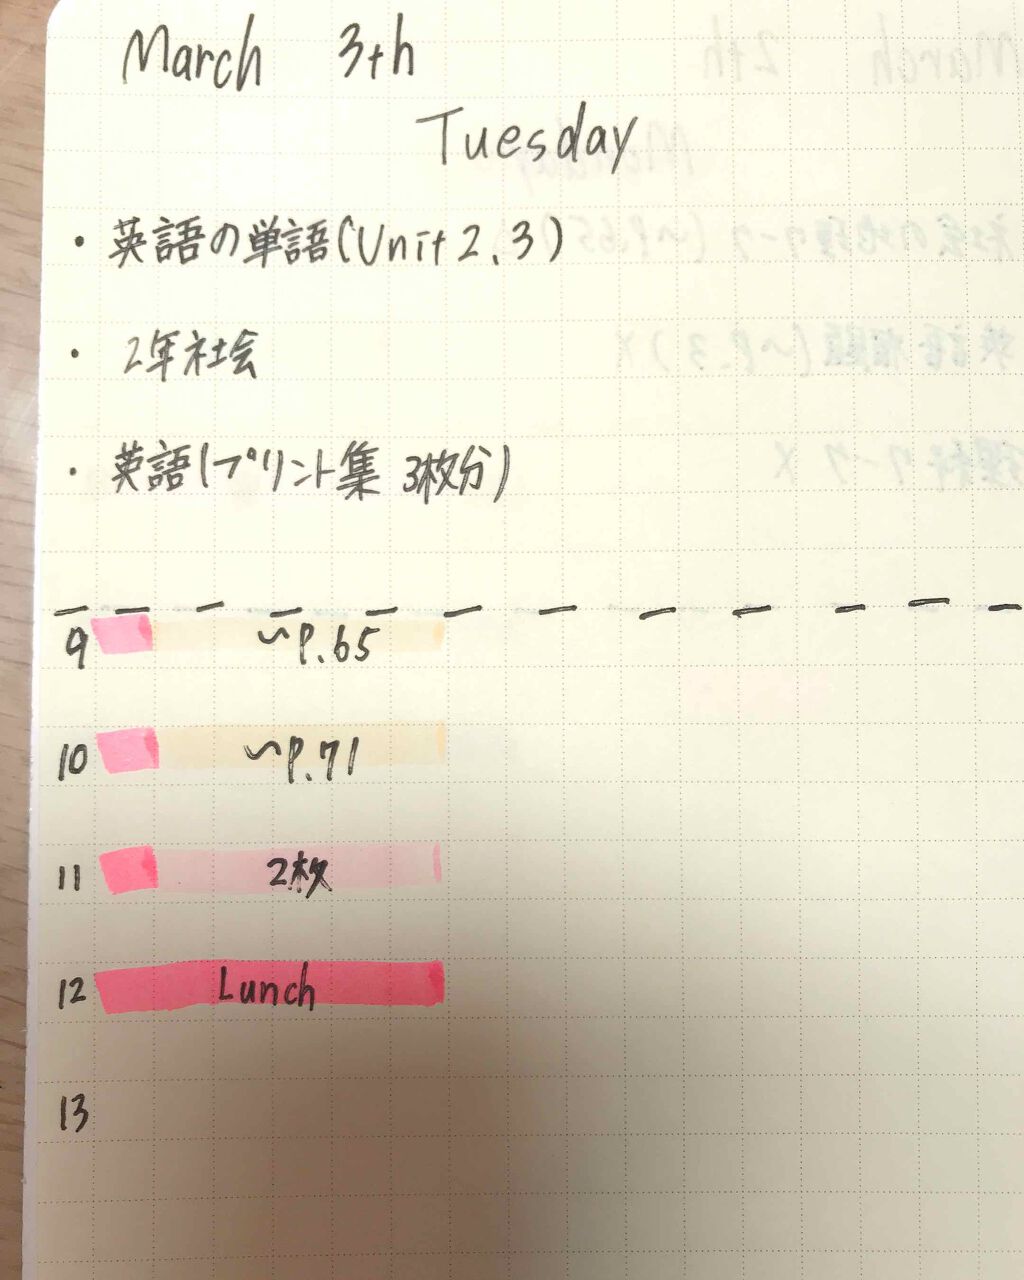 March 3th
Tuesday
・英語の単語(Unit 2,3)
・2年社会
・英語(プリント集 3枚分)
9 〜P.65
10 〜P.71
11 2枚
12 Lunch
13